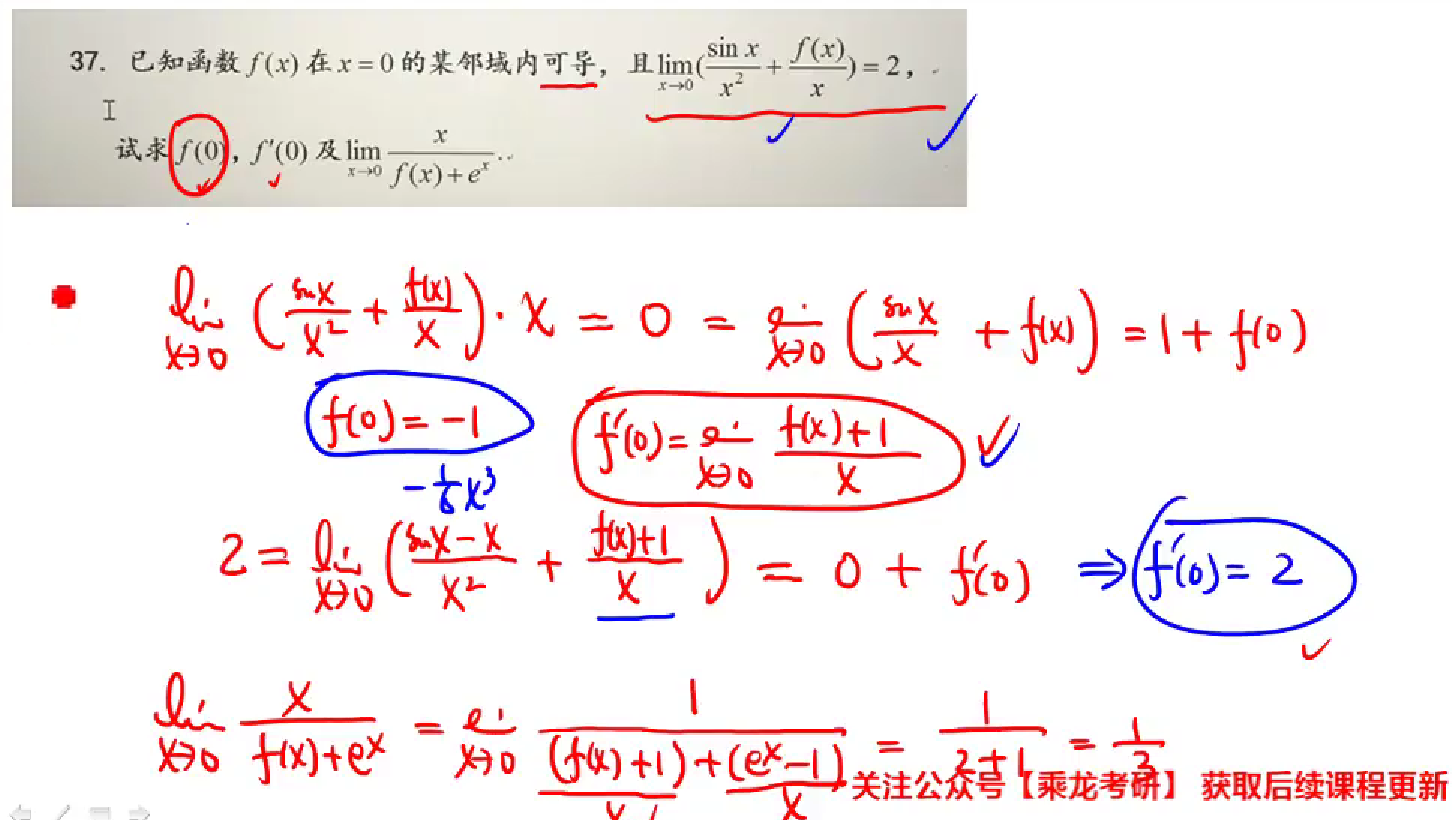 37. 已知函数 f(x) 在 x = 0 的某邻域内可导，且 lim_{x→0}(sin x/x² + f(x)/x) = 2，
试求 f(0)，f′(0) 及 lim_{x→0} x/(f(x)+e^x)..
lim_{x→0} (sinx/x² + f(x)/x)·x = 0 = lim_{x→0} (sinx/x + f(x)) = 1 + f(0)
f(0) = -1 f′(0) = lim_{x→0} (f(x)+1)/x
-1/6 x³
2 = lim_{x→0} ((sinx-x)/x² + (f(x)+1)/x) = 0 + f′(0) ⇒ f′(0) = 2
lim_{x→0} x/(f(x)+e^x) = lim_{x→0} 1/((f(x)+1)/x + (e^x-1)/x) = 1/(2+1) = 1/3
关注公众号【乘龙考研】 获取后续课程更新